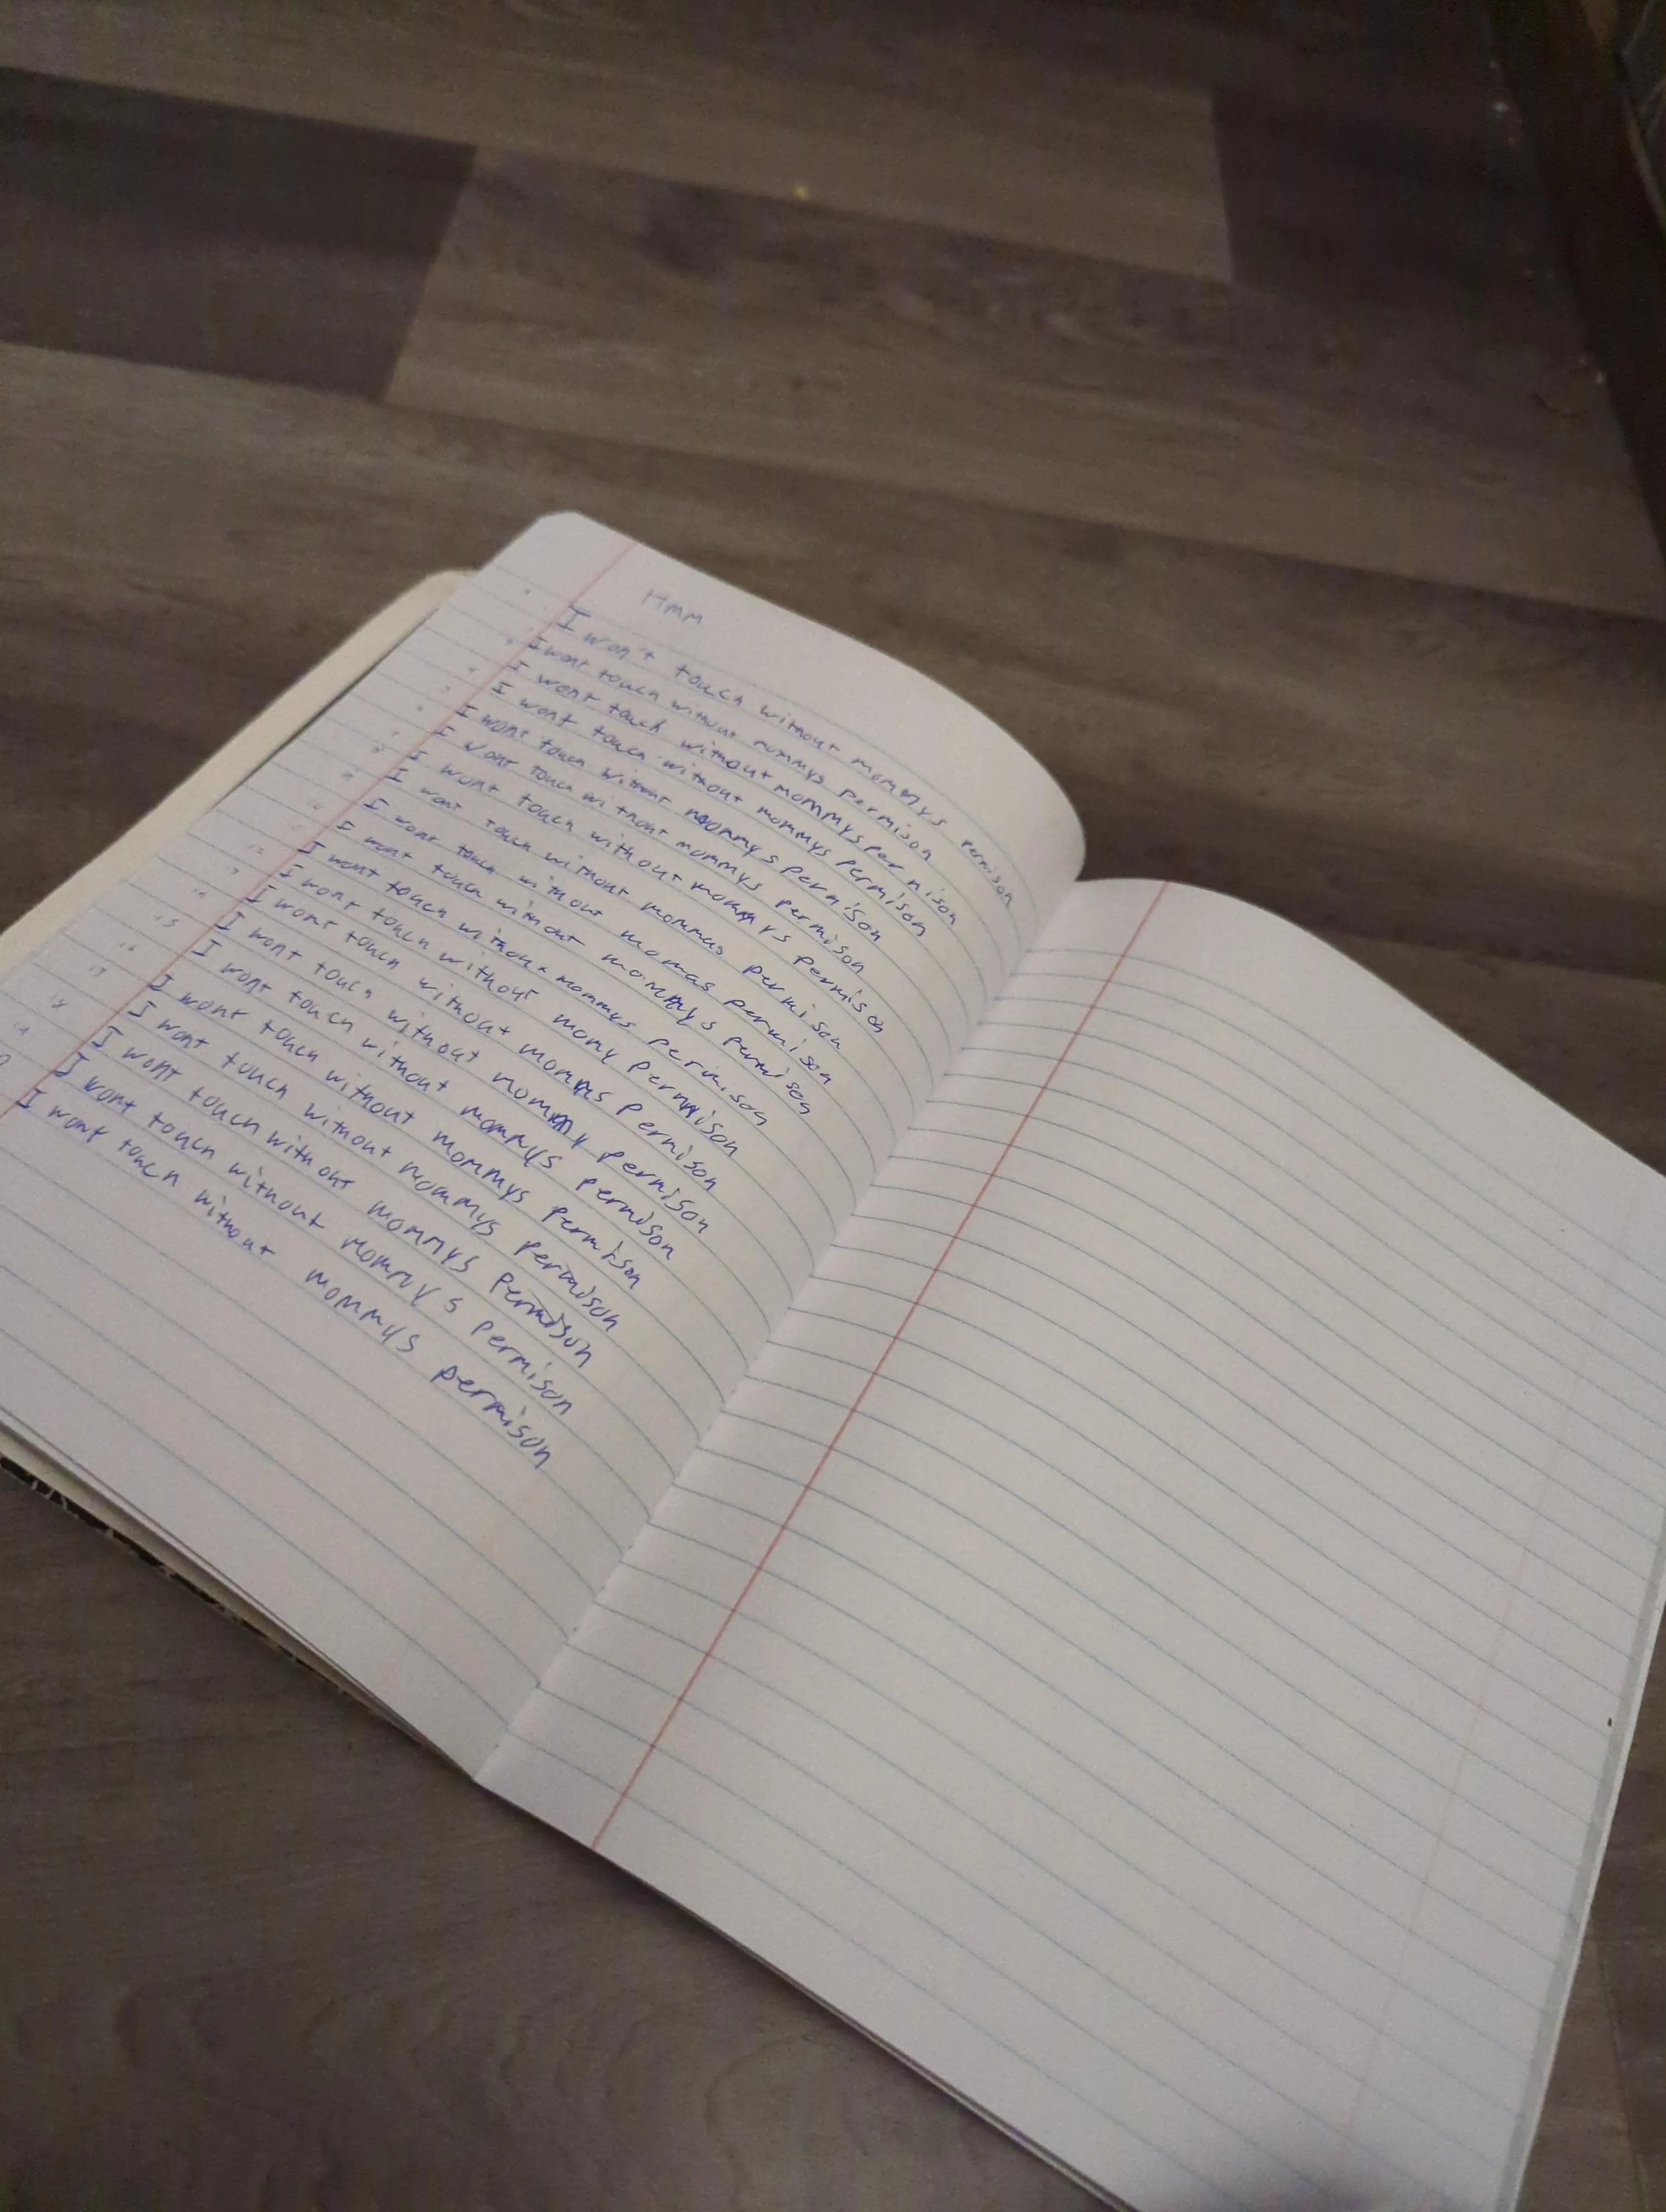 HMM
I won't touch without mommys permison
I wont touch without mommys permison
I wont touch without mommys permison
I wont touch without mommys permison
I wont touch without mommys permison
I wont touch without mommys permison
I wont touch without mommys permison
I wont touch without mommas permison
I wont touch without momas permison
I wont touch without mommys permison
I wont touch without mommys permison
I wont touch without momy permison
I wont touch without mommys permison
I wont touch without mommy permison
I wont touch without mommys permison
I wont touch without mommys permison
I wont touch without mommys permison
I wont touch without mommys permison
I wont touch without mommys permison
I wont touch without mommys permison